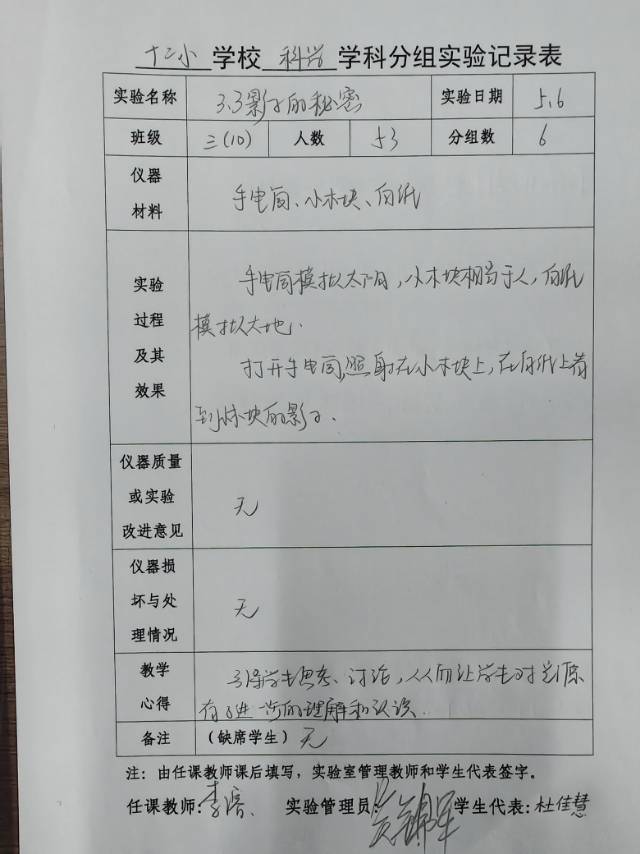 十二小 学校 科学 学科分组实验记录表
实验名称 3.3影子的秘密 实验日期 5.6
班级 三(10) 人数 53 分组数 6
仪器
材料
手电筒、小木块、白纸
实验
过程
及其
效果
手电筒模拟太阳，小木块相当于人，白纸
模拟大地.
打开手电筒,照射在小木块上,在白纸上看
到小木块的影子.
仪器质量
或实验
改进意见
无
仪器损
坏与处
理情况
无
教学
心得
引导学生思考、讨论，从而让学生对光源
有了进一步的理解和认识.
备注 (缺席学生) 无
注：由任课教师课后填写，实验室管理教师和学生代表签字。
任课教师: 李 实验管理员: 学生代表: 杜佳慧